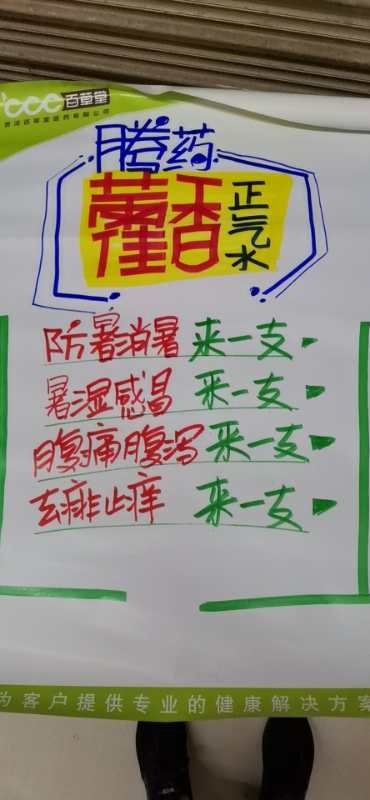 百草堂
腾药
藿香正气水
防暑消暑 来一支
暑湿感冒 来一支
腹痛腹泻 来一支
去痱止痒 来一支
为客户提供专业的健康解决方案